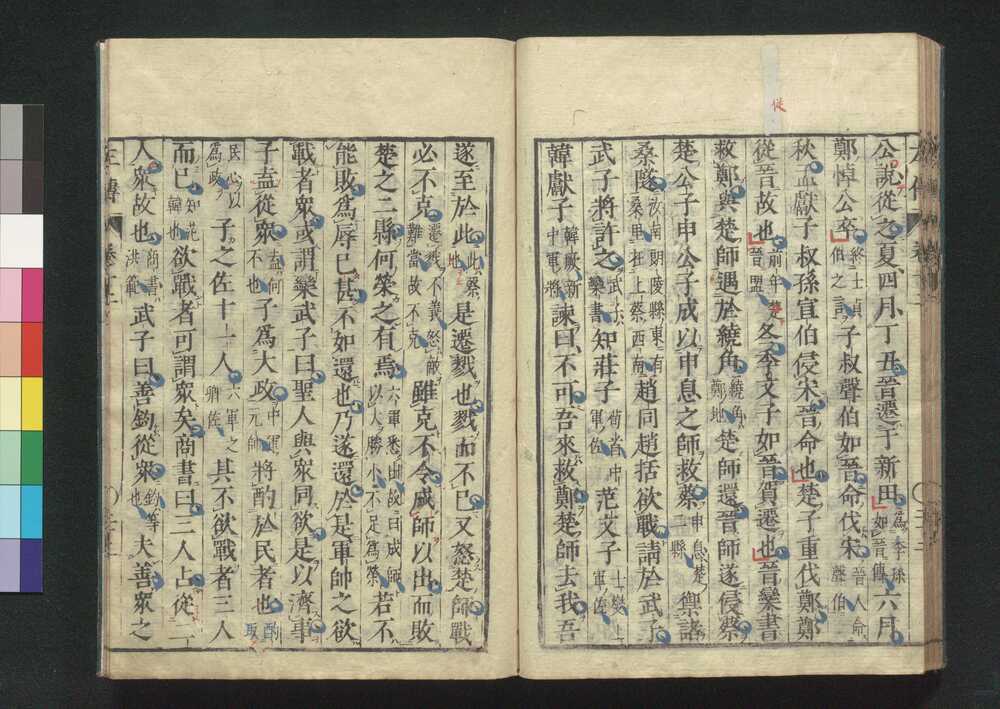 從
左傳
公說從之夏四月丁丑晉遷于新田為季孫如晉傳六月
鄭悼公卒終士貞伯之言子叔聲伯如晉命伐宋晉人命聲伯
秋孟獻子叔孫宣伯侵宋晉命也楚子重伐鄭鄭
從晉故也前年楚晉盟冬季文子如晉賀遷也晉欒書
救鄭與楚師遇於繞角繞角鄭地楚師還晉師遂侵蔡
楚公子申公子成以申息之師救蔡申息楚二縣禦諸
桑隧汝南朗陵縣東有桑里在上蔡西南趙同趙括欲戰請於武子
武子將許之武子欒書知莊子荀首中軍佐范文子士燮上軍佐
韓獻子韓厥新中軍將諫曰不可吾來救鄭楚師去我吾
遂至於此此蔡地是遷戮也戮而不已又怒楚師戰
必不克遷戮不義怒敵難當故不克雖克不令成師以出而敗
楚之二縣何榮之有焉六軍悉出故曰成師以大勝小不足為榮若不
能敗為辱已甚不如還也乃遂還於是軍帥之欲
戰者眾或謂欒武子曰聖人與眾同欲是以濟事
子盍從眾盍何不也子為大政中軍元帥將酌於民者也酌取
民心以為政子之佐十一人六軍之卿佐其不欲戰者三人
而已知范韓也欲戰者可謂眾矣商書曰三人占從二
人眾故也商書洪範武子曰善鈞從眾鈞等也夫善眾之
左傳